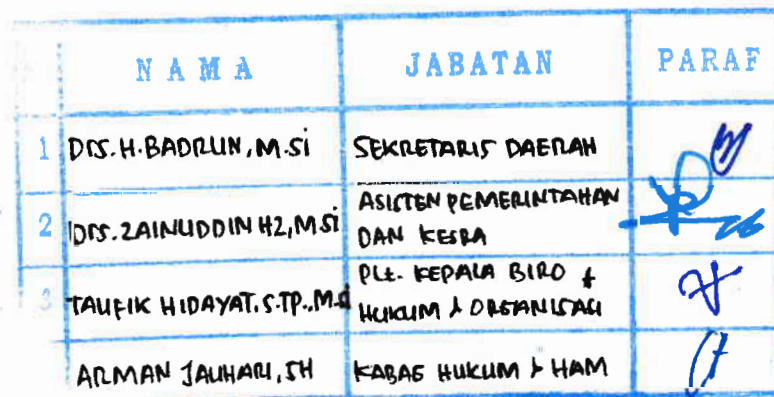 NAMA JABATAN PARAF
1 DRS. H. BADRUN, M.Si SEKRETARIS DAERAH
2 DRS. ZAINUDDIN HZ, M.Si ASISTEN PEMERINTAHAN
DAN KESRA
3 TAUFIK HIDAYAT, S.TP., M.Si PLt. KEPALA BIRO
HUKUM & ORGANISASI
ARMAN JAUHARI, SH KABAG HUKUM & HAM